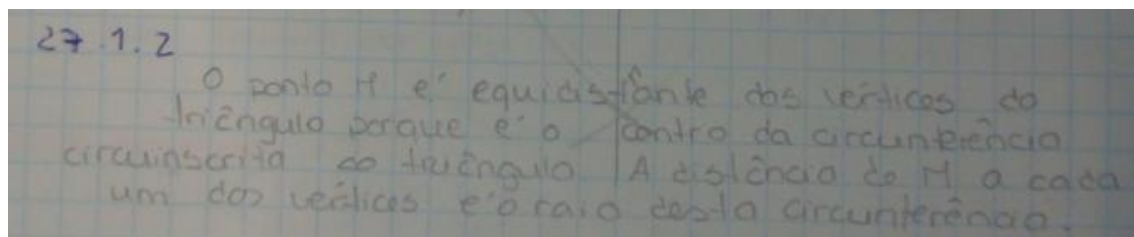 27.1.2
O ponto M é equidistante dos vértices do
triângulo porque é o centro da circunferência
circuinscrita ao triângulo. A distância de M a cada
um dos vértices é o raio desta circunferência.